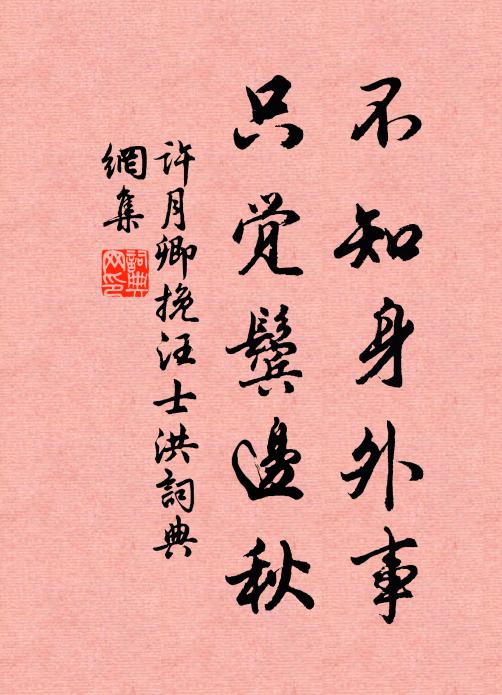 不知身外事
只觉鬓邊秋
许月卿挽汪士洪詞典
網集
詞典
网印